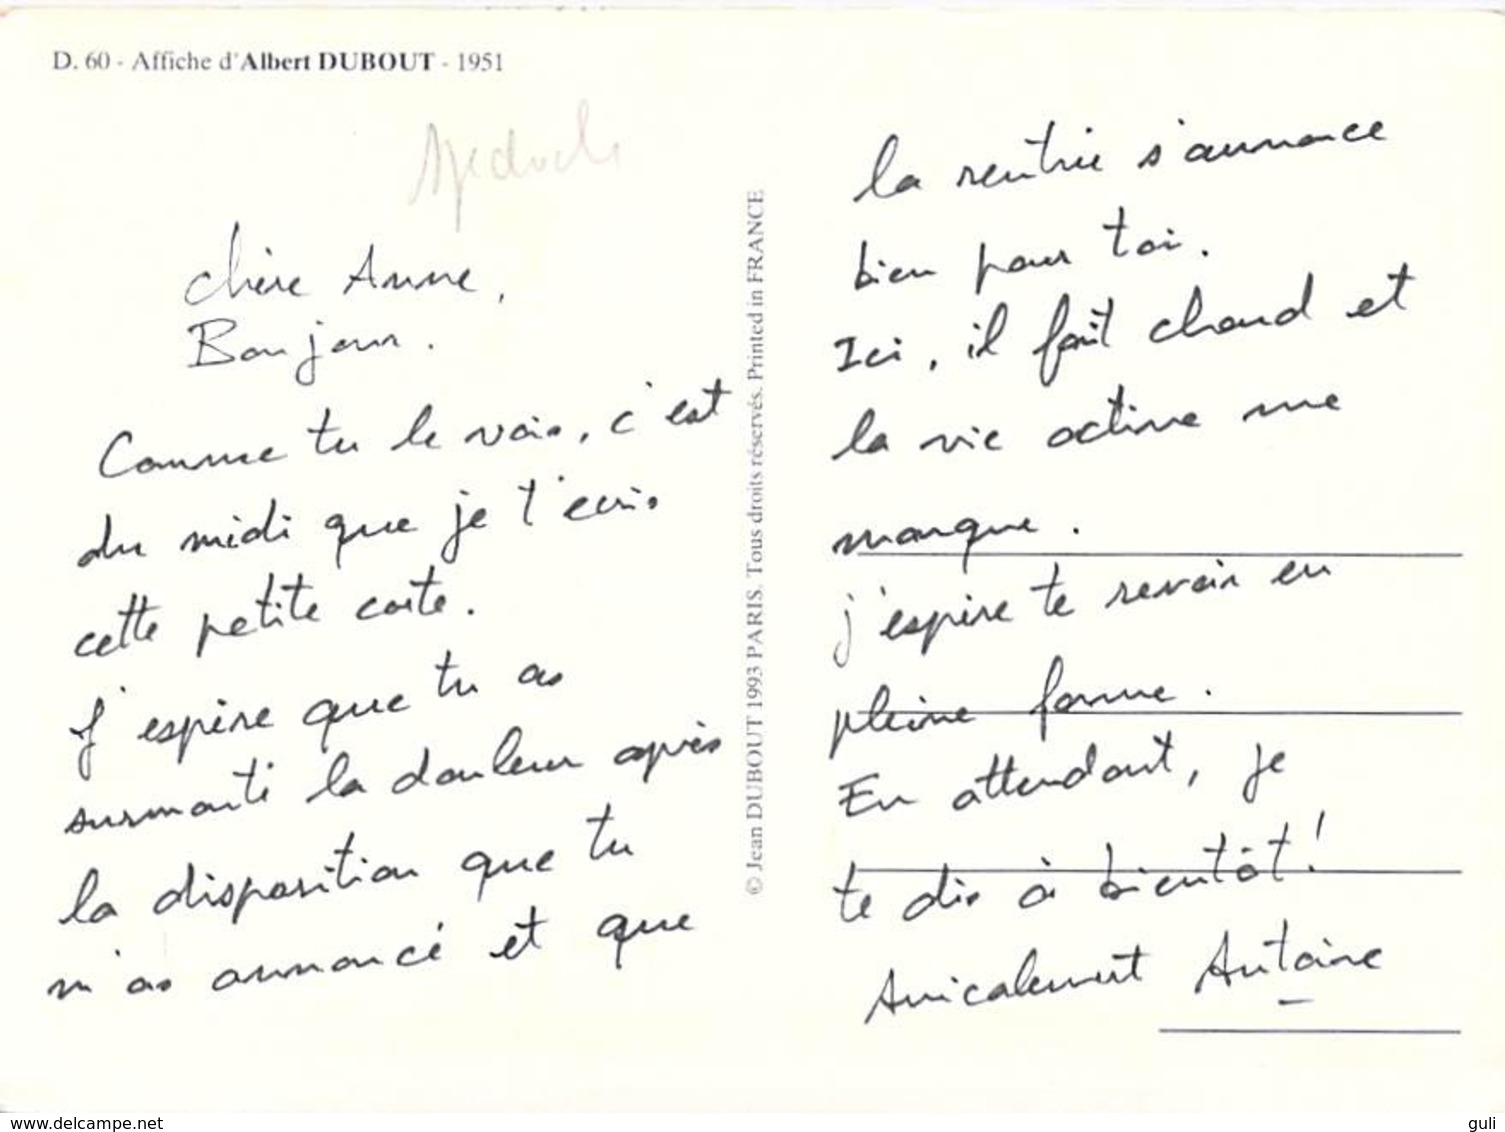 D. 60 - Affiche d'Albert DUBOUT - 1951
Chère Anne,
Bonjour.
Comme tu le vois, c'est
du midi que je t'ecris
cette petite carte.
J'espère que tu as
surmonté la douleur après
la disposition que tu
m'as annoncé et que
© Jean DUBOUT 1993 PARIS. Tous droits réservés. Printed in FRANCE
la rentrée s'annonce
bien pour toi.
Ici, il fait chaud et
la vie active me
manque.
j'espère te revoir en
pleine forme.
En attendant, je
te dis à bientôt!
Amicalement Antoine
www.delcampe.net
guli